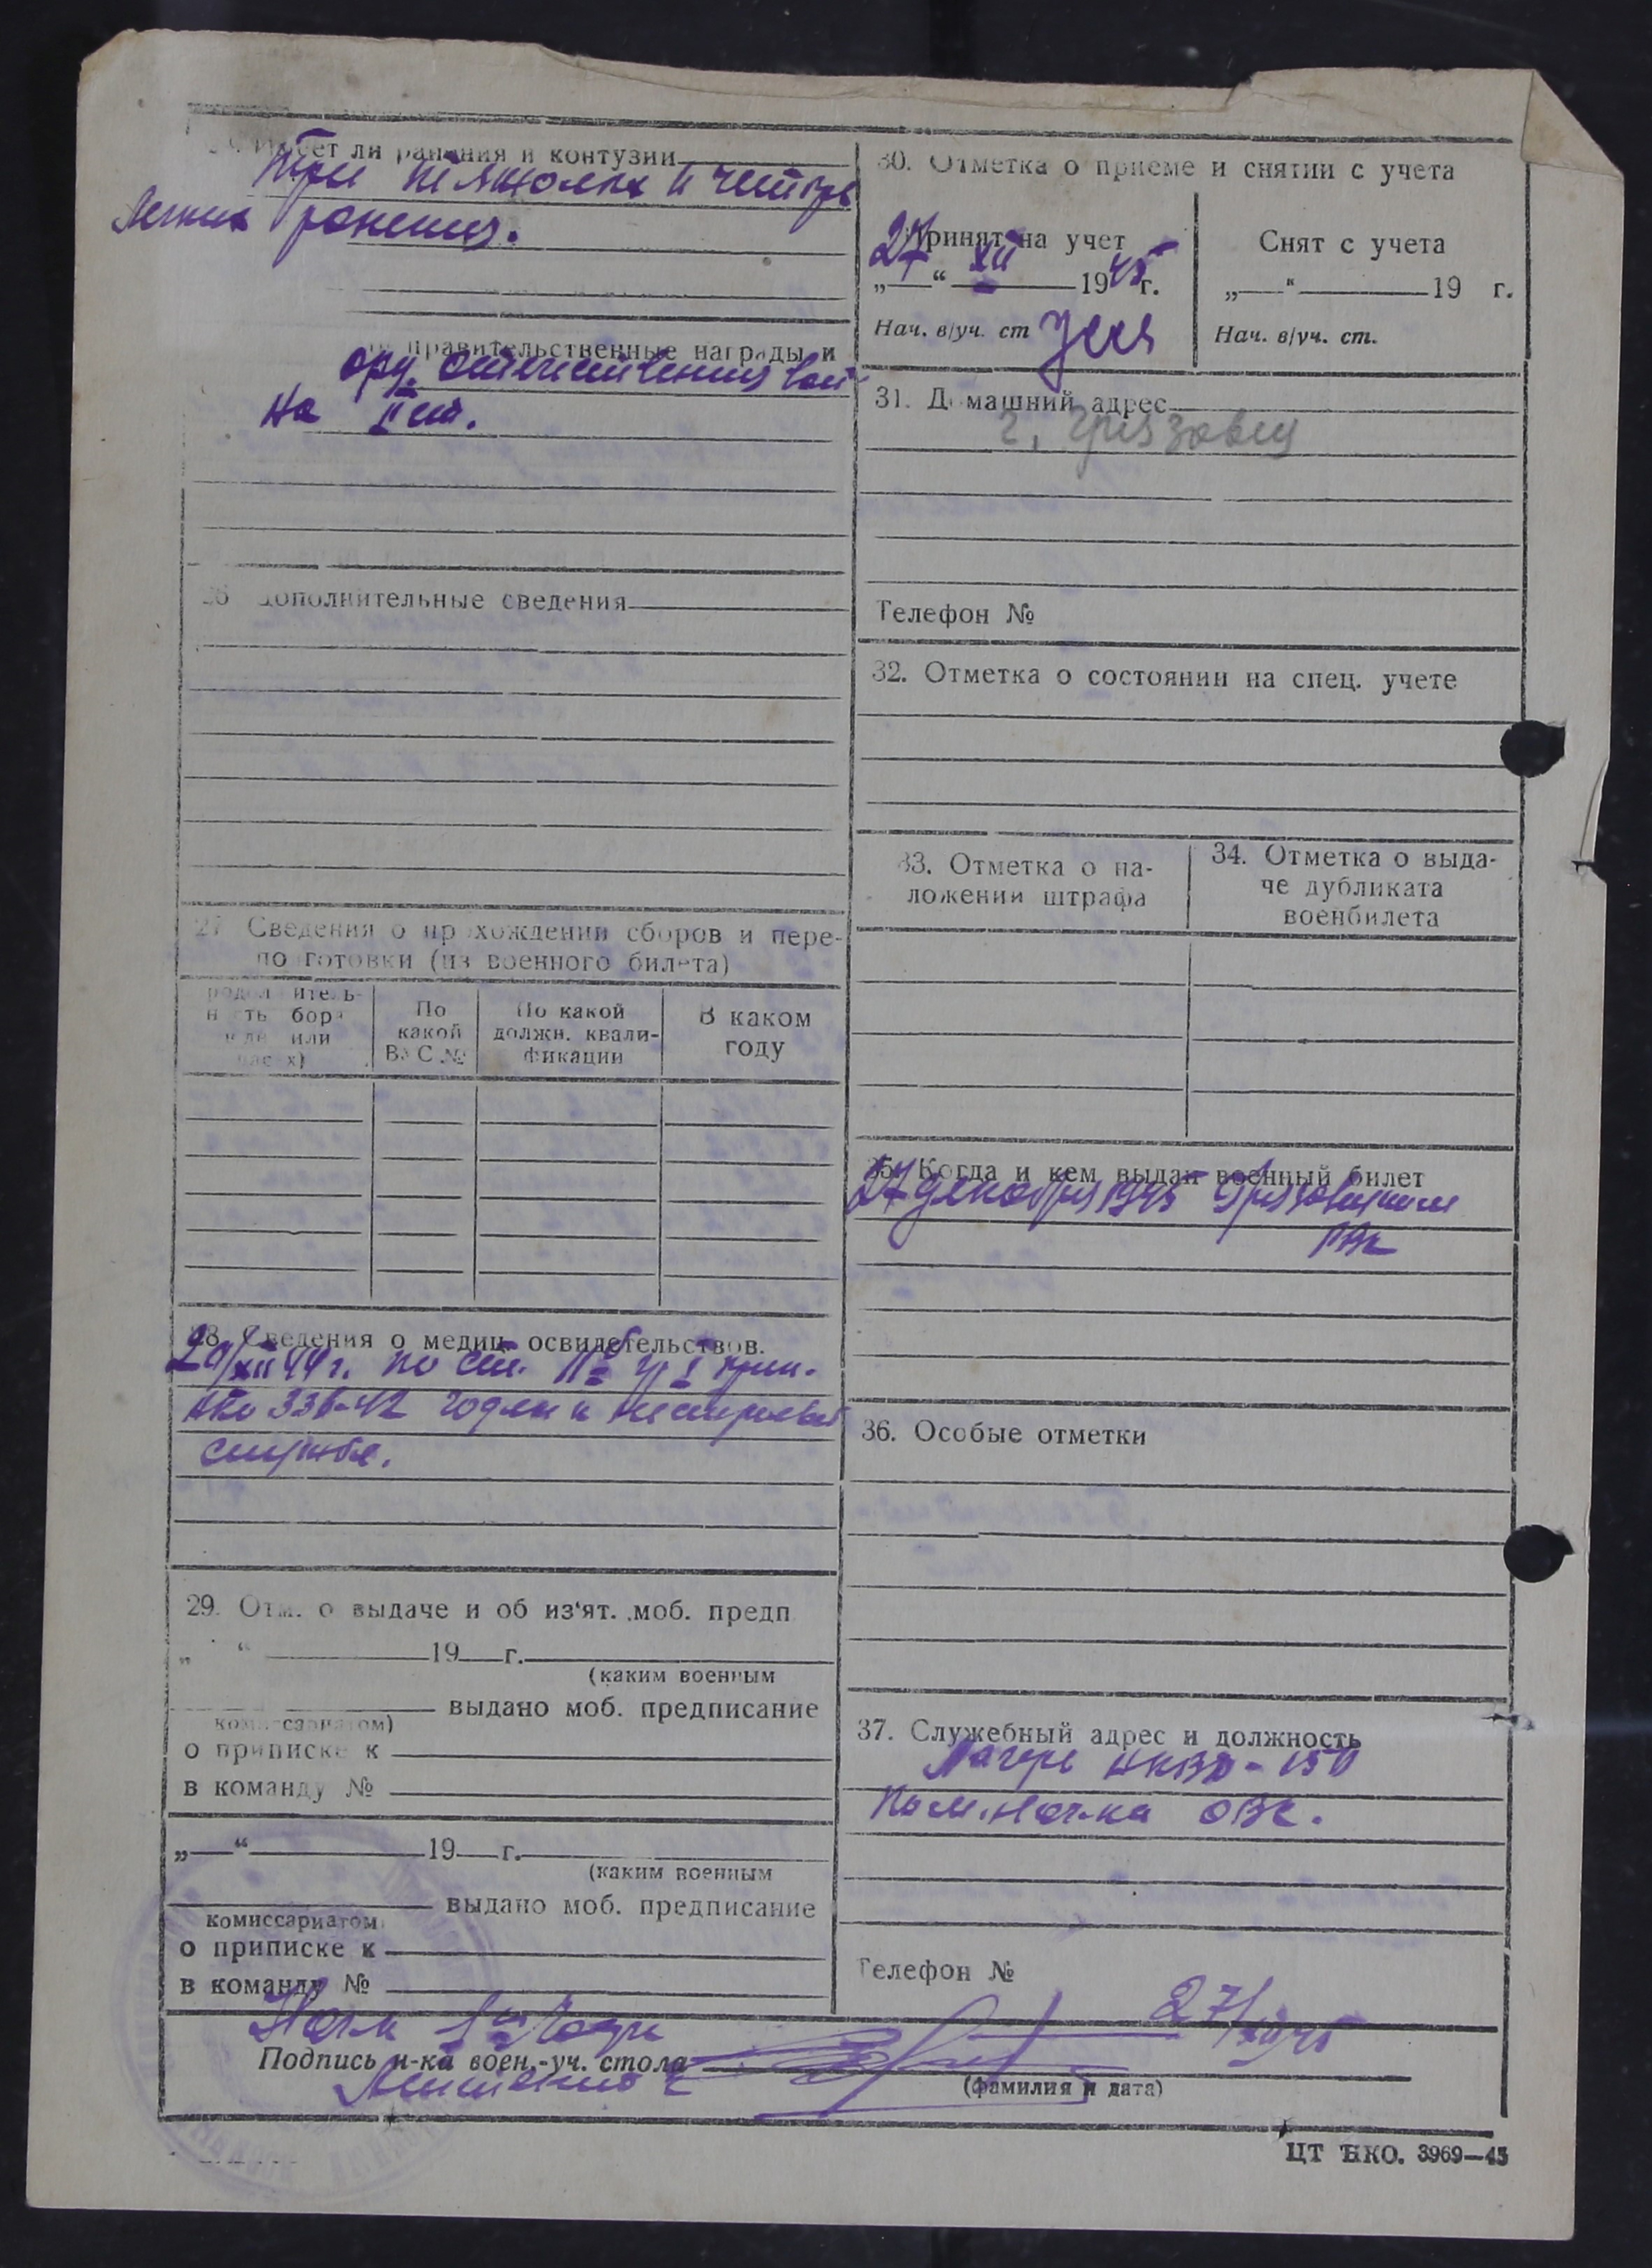 Имеет ли ранения и контузии
три тяжолых и четыре
легких ранения.
правительственные награды и
орд. отечественная вой-
на II ст.
26 Дополнительные сведения
27 Сведения о прохождении сборов и пере-
подготовки (из военного билета)
По
какой
ВУС №
По какой
должн. квали-
фикации
В каком
году
28. Сведения о медиц. освидетельствов.
29/XII 44 г. по ст.
НКО 336-42 годен к нестроевой
службе.
29. Отм. о выдаче и об из‘ят. моб. предп.
„ “ 19 г.
(каким военным
выдано моб. предписание
комиссариатом)
о приписке к
в команду №
„ “ 19 г.
(каким военным
выдано моб. предписание
комиссариатом)
о приписке к
в команду №
30. Отметка о приеме и снятии с учета
Принят на учет
„27“ XII 1945 г.
Нач. в/уч. ст
Снят с учета
„ “ 19 г.
Нач. в/уч. ст.
31. Домашний адрес
г. Грязовец
Телефон №
32. Отметка о состоянии на спец. учете
33. Отметка о на-
ложении штрафа
34. Отметка о выда-
че дубликата
военбилета
35. Когда и кем выдан военный билет
27 декабря 1945 Грязовецким
РВК
36. Особые отметки
37. Служебный адрес и должность
Лагерь НКВД-150
Пом. Нач-ка ОВС.
Телефон №
27/XII 45
Подпись н-ка воен.-уч. стола
(фамилия и дата)
ЦТ НКО. 3969—45